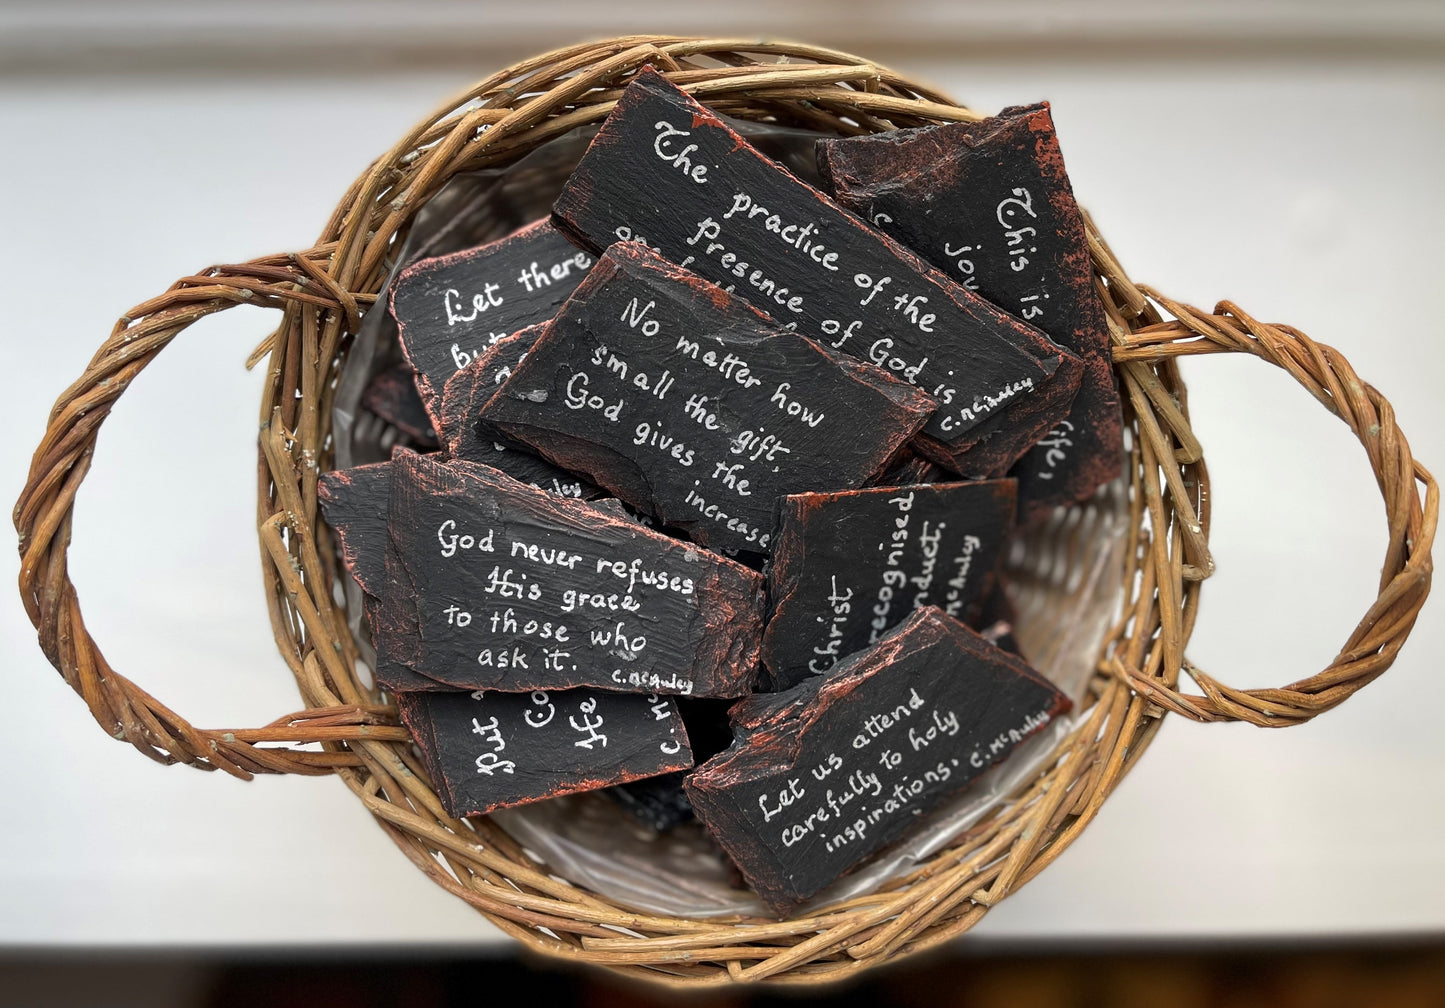 The
practice of the
Presence of God is
C. McAuley
This is
Let there
but
No matter how
small the gift,
God gives the
increase
God never refuses
His grace
to those who
ask it.
C. McAuley
Christ
recognised
McAuley
Put
Co
He
Let us attend
carefully to holy
inspirations.
C. McAuley
life,